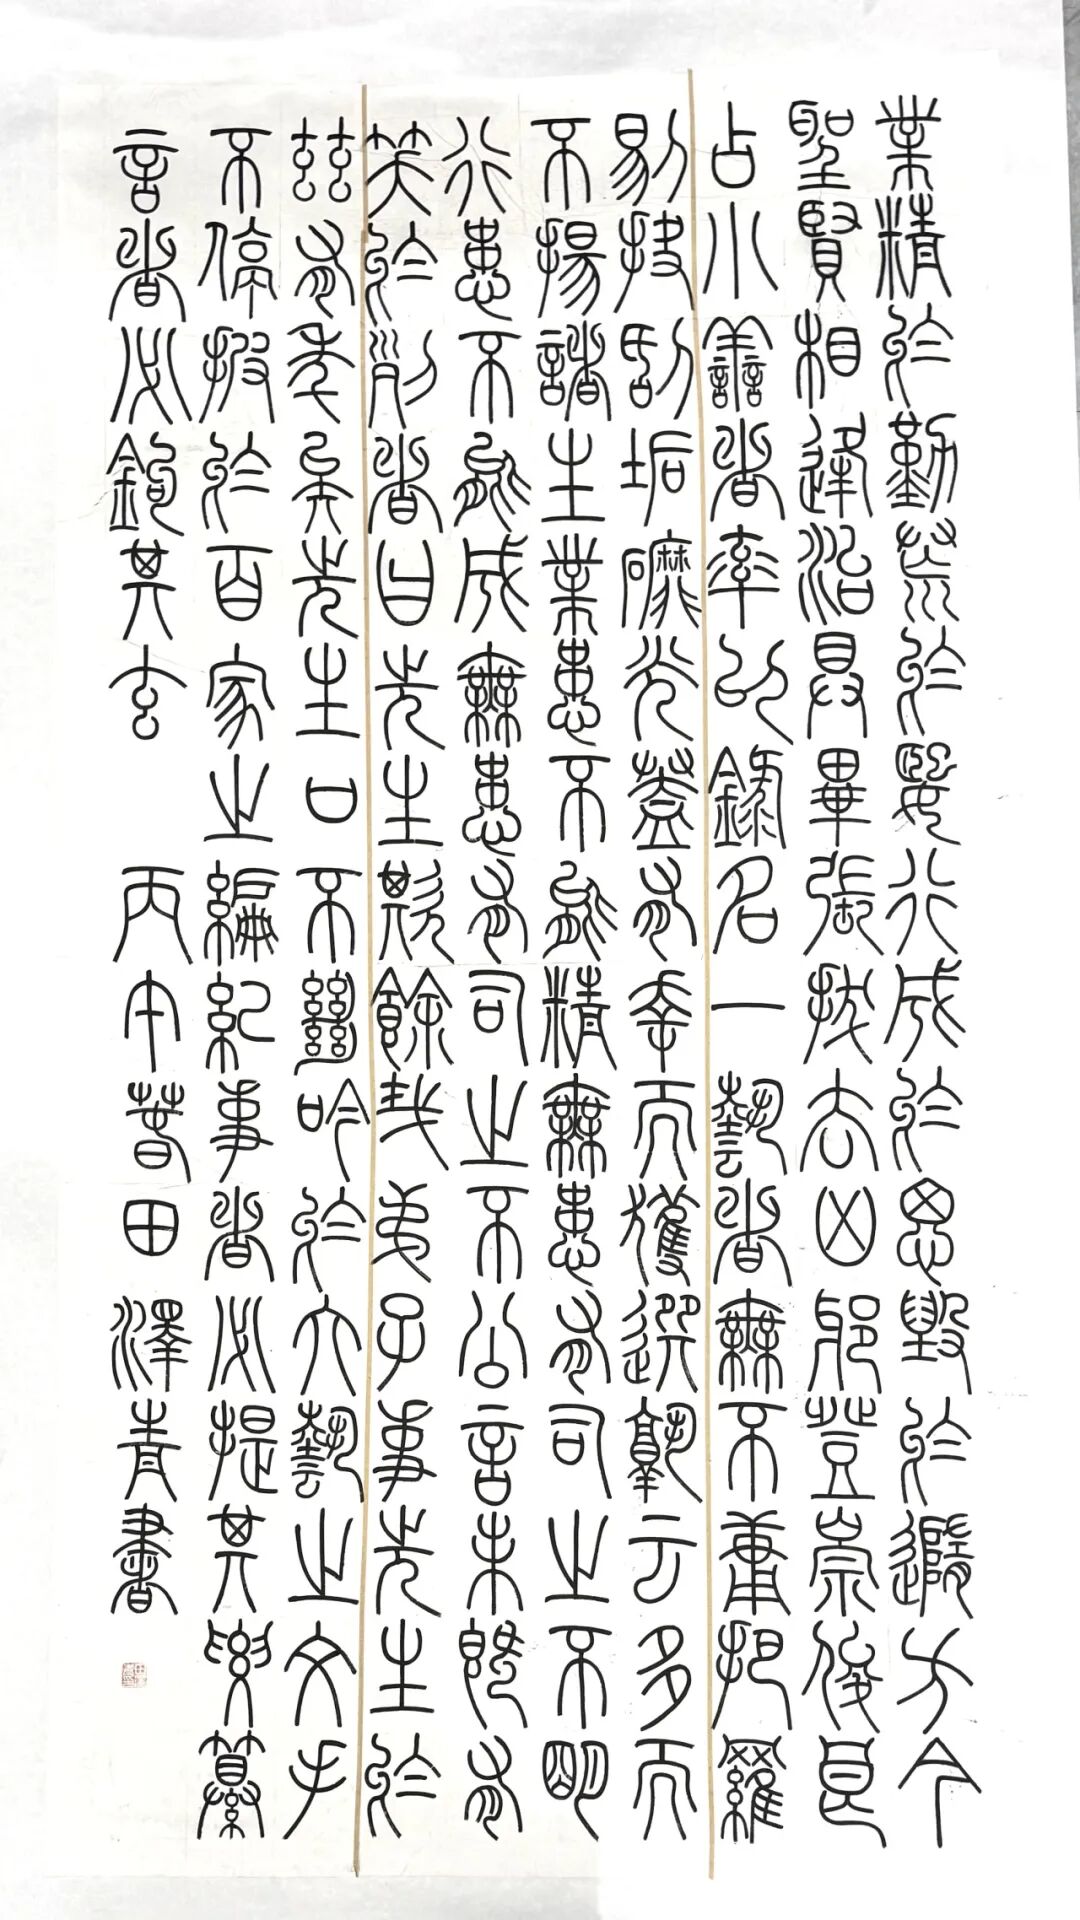 業精於勤荒於嬉行成於思毀於隨方今
聖賢相逢治具畢張拔去凶邪登崇俊良
占小善者率以錄名一藝者無不庸把羅
剔抉刮垢磨光蓋有幸而獲選孰云多而
不揚諸生業患不能精無患有司之不明
行患不能成無患有司之不公言未既有
笑於列者曰先生欺餘哉弟子事先生於
茲有年矣先生口不絕吟於六藝之文手
不停披於百家之編紀事者必提其要纂
言者必鉤其玄 丙午春田澤青書